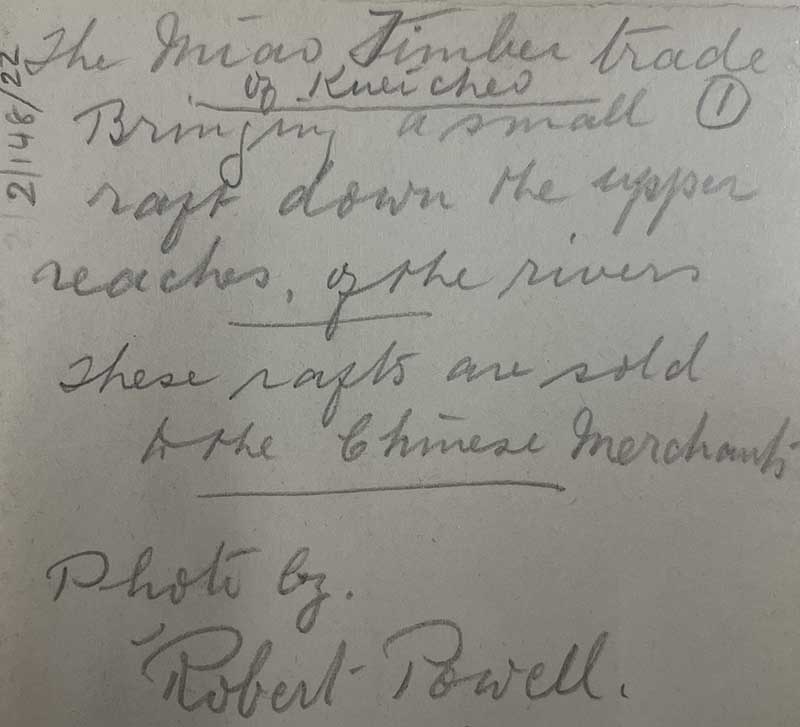 The Miao Timber trade
of Kueicheo
Bringing a small ①
raft down the upper
reaches, of the rivers
These rafts are sold
to the Chinese Merchants
Photo by.
Robert Powell.
2/148/22